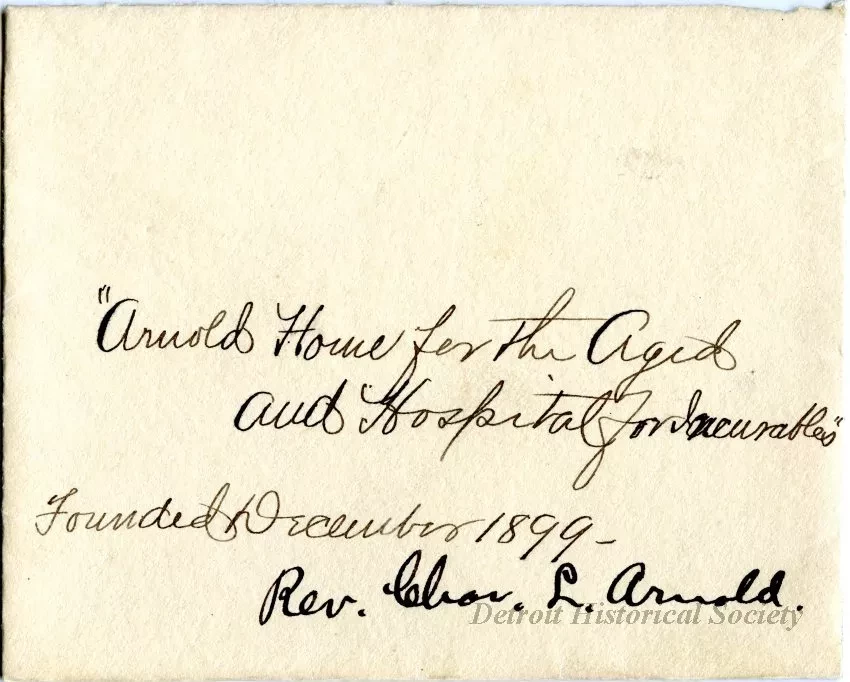 "Arnold Home for the Aged
and Hospital for Incurables"
Founded December 1899-
Rev. Chas. L. Arnold.
Detroit Historical Society